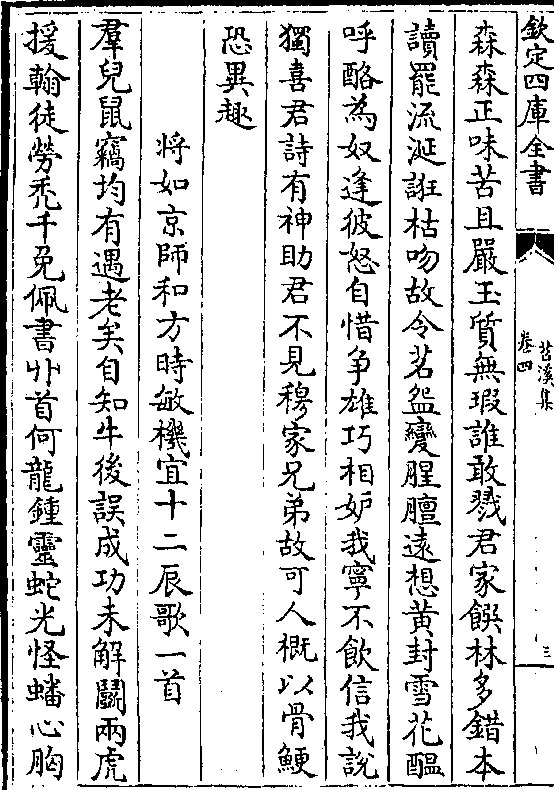 欽定四庫全書
苕溪集
卷四
三
森森正味苦且嚴玉質無瑕誰敢戮君家饌林多錯本
讀罷流涎誑枯吻故令茗盌變腥膻遠想黃封雪花醖
呼酪為奴逢彼怒自惜爭雄巧相妒我寧不飲信我說
獨喜君詩有神助君不見穆家兄弟故可人概以骨鯁
恐異趣
將如京師和方時敏機宜十二辰歌一首
羣兒鼠竊均有遇老矣自知牛後誤成功未解鬭兩虎
援翰徒勞禿千兔佩書艸首何龍鍾靈蛇光怪蟠心胸